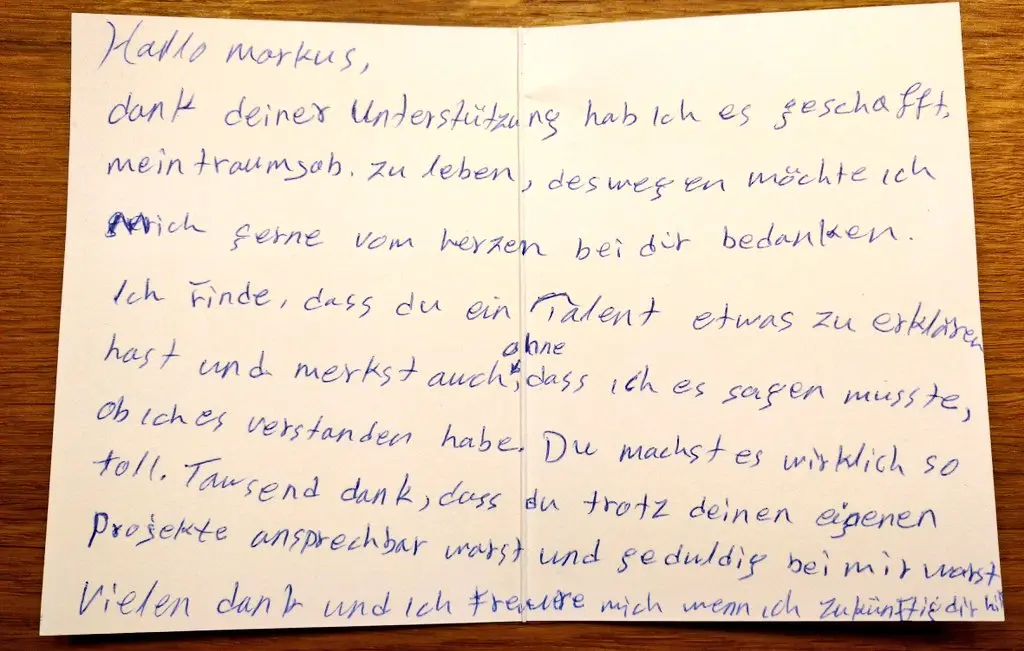 Hallo Markus,
dank deiner Unterstützung hab ich es geschafft,
mein traumjob. zu leben, deswegen möchte ich
mich gerne vom herzen bei dir bedanken.
Ich finde, dass du ein Talent etwas zu erklären
hast und merkst auch, ohne dass ich es sagen musste,
ob ich es verstanden habe. Du machst es wirklich so
toll. Tausend dank, dass du trotz deinen eigenen
Projekte ansprechbar warst und geduldig bei mir warst
Vielen dank und ich freue mich wenn ich zukünftig dir